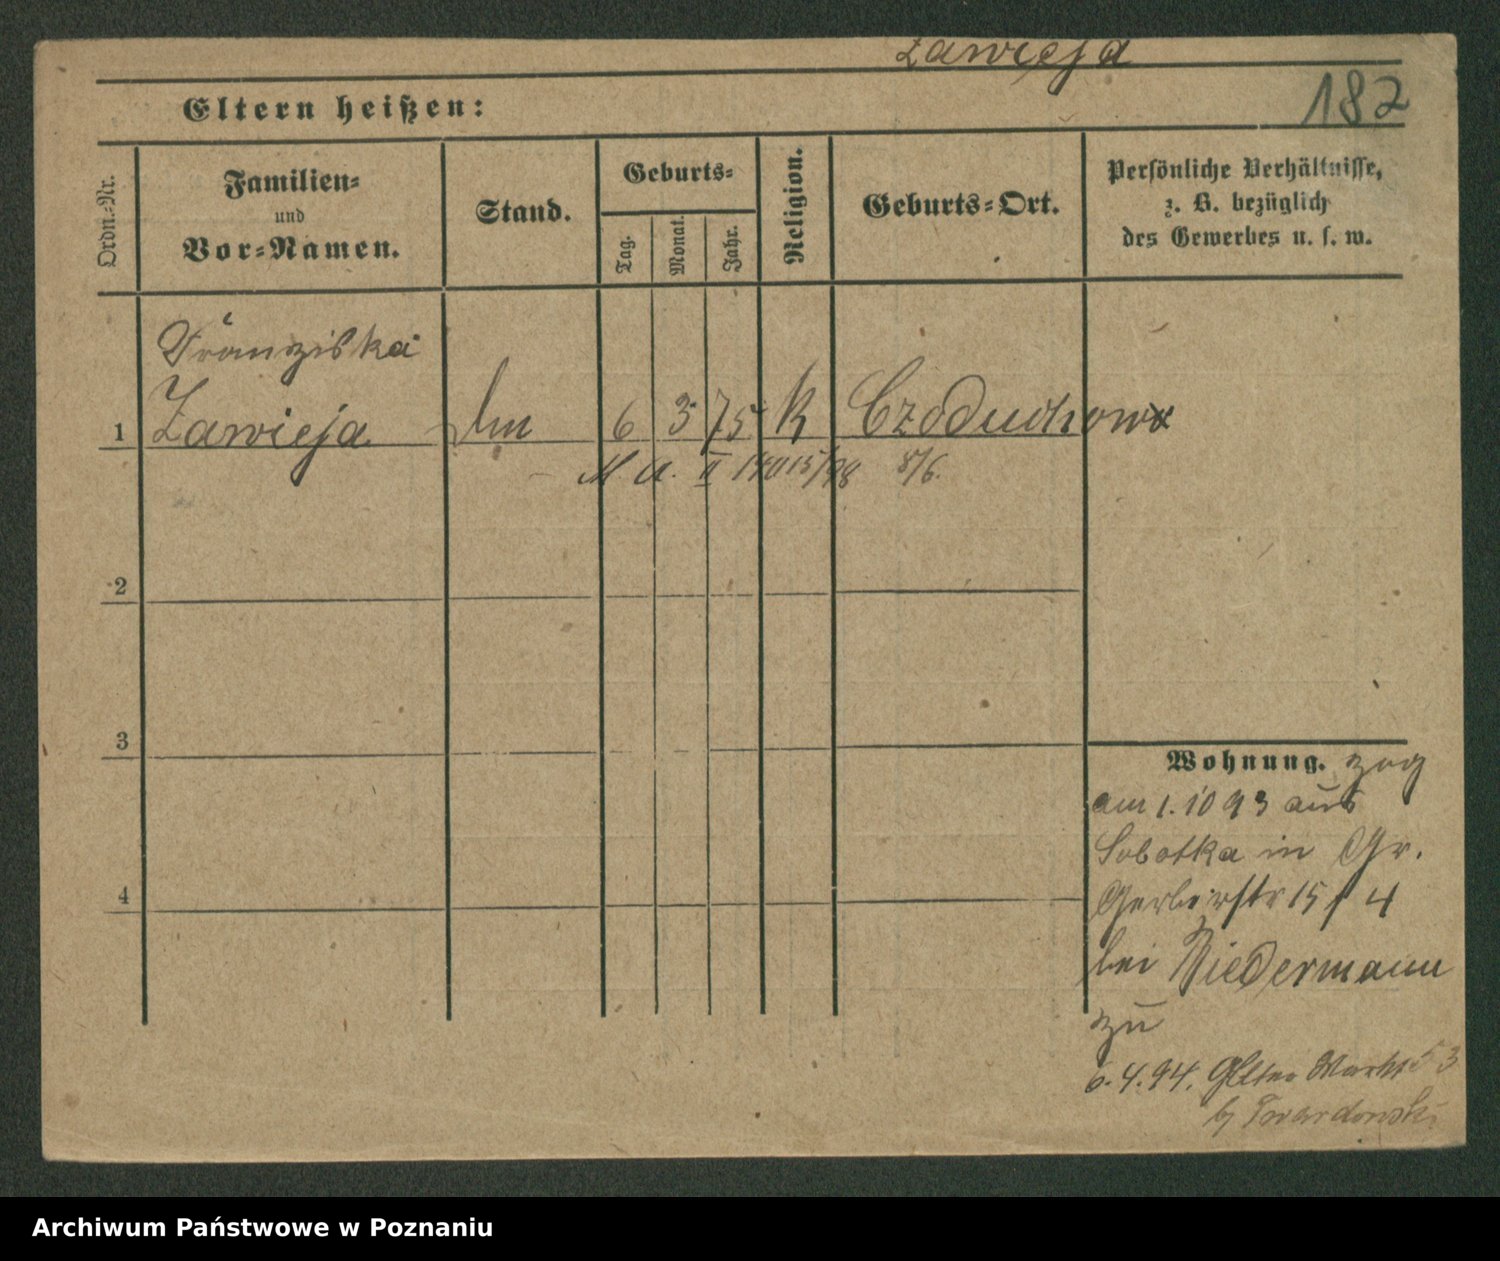 Zawieja
182
Eltern heißen:
Ordn.-Nr.
Familien-
und
Vor-Namen.
Stand.
Geburts-
Tag.
Monat.
Jahr.
Religion.
Geburts-Ort.
Persönliche Verhältnisse,
z. B. bezüglich
des Gewerbes u. s. w.
Franziska
1 Zawieja 6 3 75 K
M A. II 14015/98 8/6.
2
3
4
Wohnung. zog
am 1.10 93 aus
Sobotka in Gr.
Gerberstr 15 / 4
bei Niedermann
zu
6.4.94. Alter Markt 53
b/ Twardowski